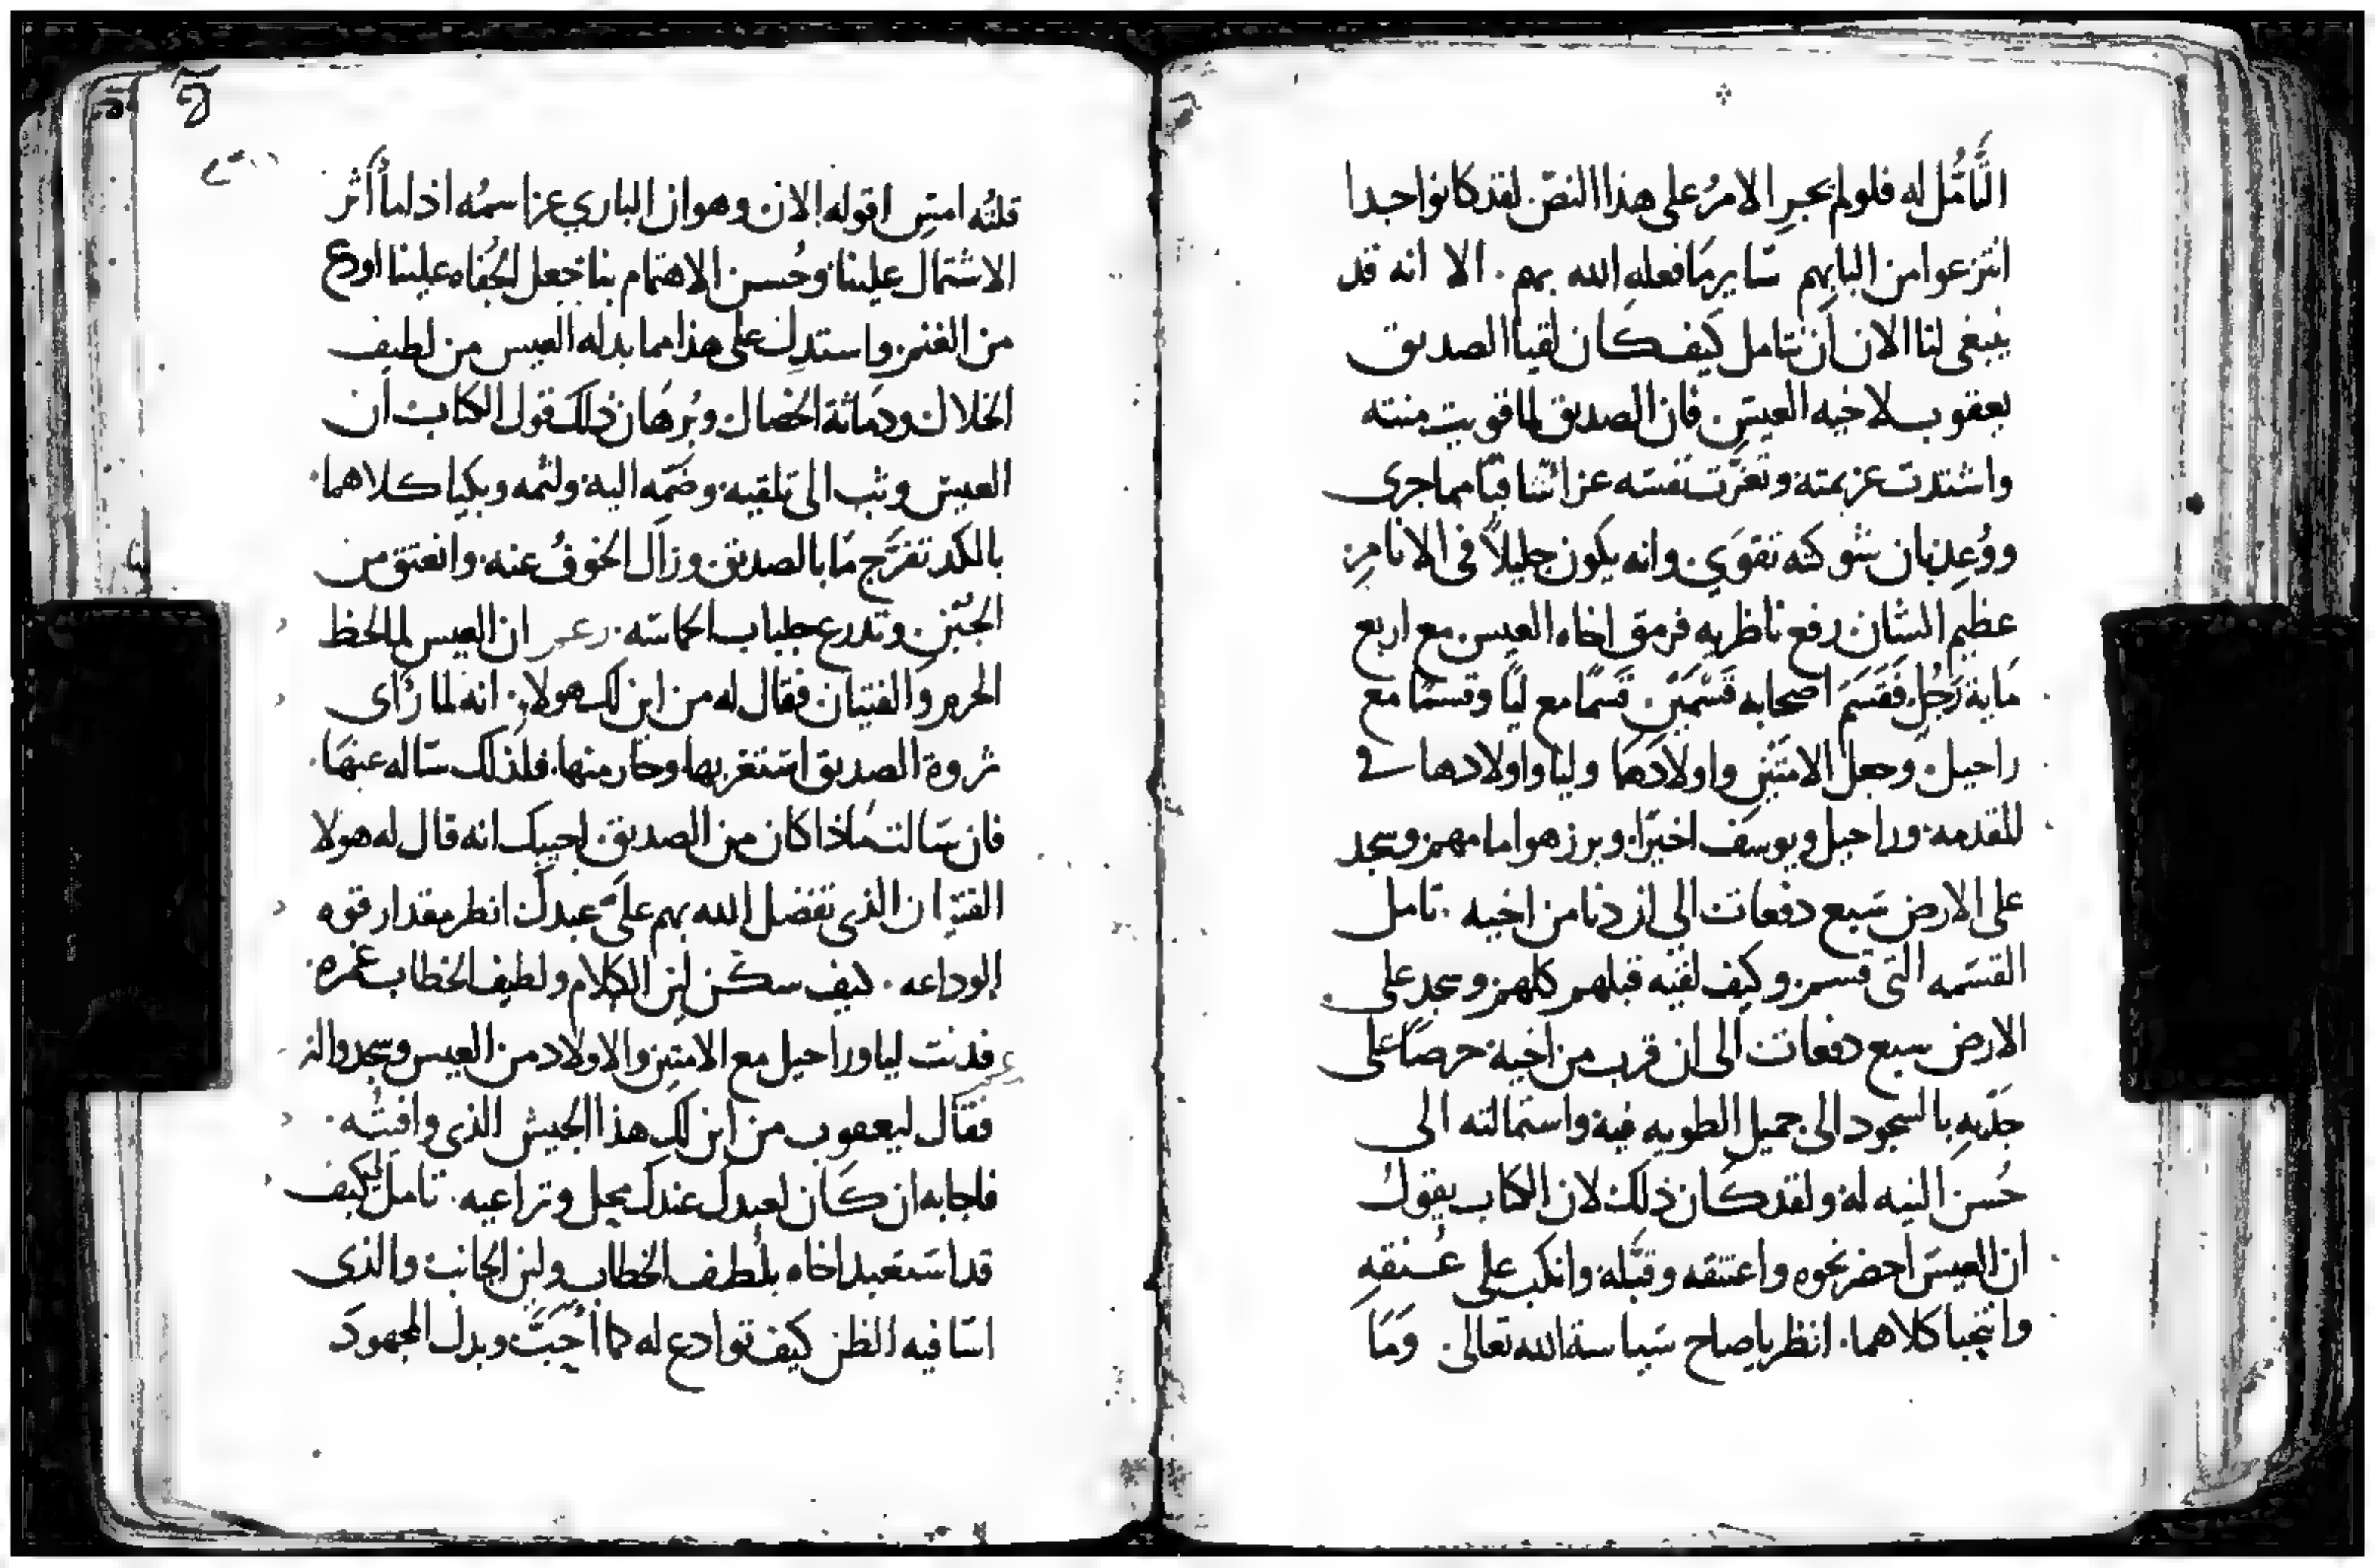 التأمل له فلو لم يجر الامر على هذا النص لقد كانوا جدا
انتزعوا من البابهم ساير ما فعله الله بهم . الا انه قد
ينبغى لنا الان أن نتامل كيف كان لقيا الصديق
يعقوب لاخيه العيس فان الصديق لما قويت منته
واشتدت عزيمته وتعزت نفسه عزا شافيا مما جرى
ووعد بان شوكته تقوى . وانه يكون جليلاً فى الانام
عظيم الشان رفع ناظريه فرمق اخاه العيس مع اربع
ماية رجل فقسم اصحابه قسمين قسمًا مع ليا وقسمًا مع
راحيل . وجعل الامتين واولادهما وليا واولادها فى
المقدمه وراحيل ويوسف اخيرًا . وبرز هو امامهم وسجد
على الارض سبع دفعات الى ان دنا من اخيه . تامل
القسمه التى قسم وكيف لقيه قبلهم كلهم وسجد على
الارض سبع دفعات الى ان قرب من اخيه حرصًا على
جذبه بالسجود الى جميل الطويه فيه واستمالته الى
حسن النيه له ولقد كان ذلك لان الكتاب يقول
ان العيس احضر نحوه واعتنقه وقبله وانكب على عنقه
وانتحبا كلاهما . انظر ياصاح سياسة الله تعالى وما
قلته امس اقوله الان وهو ان الباري عز اسمه اذا ما أثر
الاشتمال علينا وحسن الاهتمام بنا جعل الجفاه علينا اودع
من الغنم واستدل على هذا مما بدله العيس من لطيف
الخلال ودماثة الخصال وبرهان ذلك قول الكتاب أن
العيس وثب الى تلقيه وضمه اليه ولثمه وبكيا كلاهما .
بالكد تفرج ما بالصديق وزال الخوف عنه وانعتق من
الجبن . وتدرع جلباب الحماسه . ان العيس لما لحظ
الحرم والفتيان فقال له من اين لك هولاء . انه لما رأى
ثروة الصديق استغربها وحار منها . فلذلك ساله عنها .
فان سالت ماذا كان من الصديق اجيبك انه قال له هولا
الفتيان الذى تفضل الله بهم على عبدك انظر مقدار قوه
الوداعه . كيف سكن لين الكلام ولطيف الخطاب
فدنت ليا وراحيل مع الامتين والاولاد من العيس وسجدوا له
فقال ليعقوب من اين لك هذا الجيش الذى وافيته .
فاجابه ان كان لعبدك عندك محل وتراعيه . تامل كيف
قد استعبد اخاه بلطف الخطاب ولين الجانب والذى
اسا فيه الظن كيف توادع له وبدل المجهود